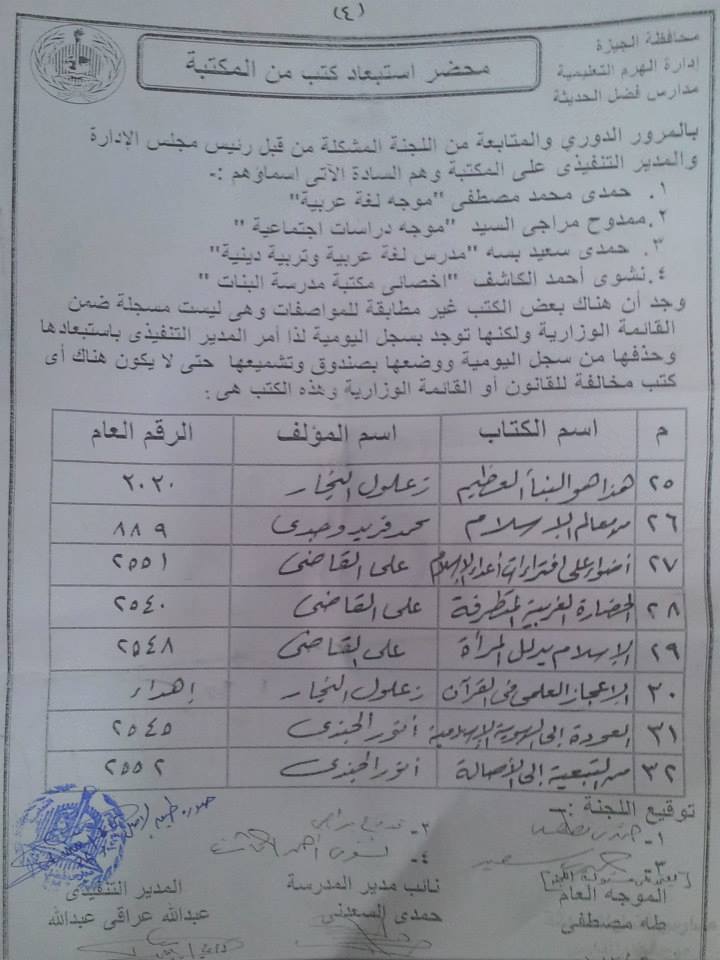 (٤)
محافظة الجيزة
إدارة الهرم التعليمية
مدارس فضل الحديثة
محضر استبعاد كتب من المكتبة
بالمرور الدوري والمتابعة من اللجنة المشكلة من قبل رئيس مجلس الإدارة
والمدير التنفيذى على المكتبة وهم السادة الآتى اسماؤهم :-
١. حمدى محمد مصطفى "موجه لغة عربية"
٢. ممدوح مراجى السيد "موجه دراسات اجتماعية "
٣. حمدى سعيد بسه "مدرس لغة عربية وتربية دينية"
٤. نشوى أحمد الكاشف "اخصائى مكتبة مدرسة البنات "
وجد أن هناك بعض الكتب غير مطابقة للمواصفات وهى ليست مسجلة ضمن
القائمة الوزارية ولكنها توجد بسجل اليومية لذا أمر المدير التنفيذى باستبعادها
وحذفها من سجل اليومية ووضعها بصندوق وتشميعها حتى لا يكون هناك أى
كتب مخالفة للقانون أو القائمة الوزارية وهذه الكتب هى :
م اسم الكتاب اسم المؤلف الرقم العام
٢٥ هذا هو النبأ العظيم زغلول النجار ٢٠٢٠
٢٦ من معالم الإسلام محمد فريد وجدى ٨٨٩
٢٧ أضواء على افتراءات أعداء الإسلام على القاضى ٢٥٥١
٢٨ الحضارة الغربية المتطرفة على القاضى ٢٥٤٠
٢٩ الإسلام يدلل المرأة على القاضى ٢٥٤٨
٣٠ الإعجاز العلمى فى القرآن زغلول النجار إهداء
٣١ العودة إلى الهوية الإسلامية أنور الجندى ٢٥٤٥
٣٢ من التبعية إلى الأصالة أنور الجندى ٢٥٥٢
توقيع اللجنة :-
١- حمدى مصطفى
٢- ممدوح مراجى
٣- حمدى سعيد
٤- نشوى أحمد الكاشف
الموجه العام نائب مدير المدرسة المدير التنفيذى
طه مصطفى حمدى السعدنى عبدالله عراقى عبدالله